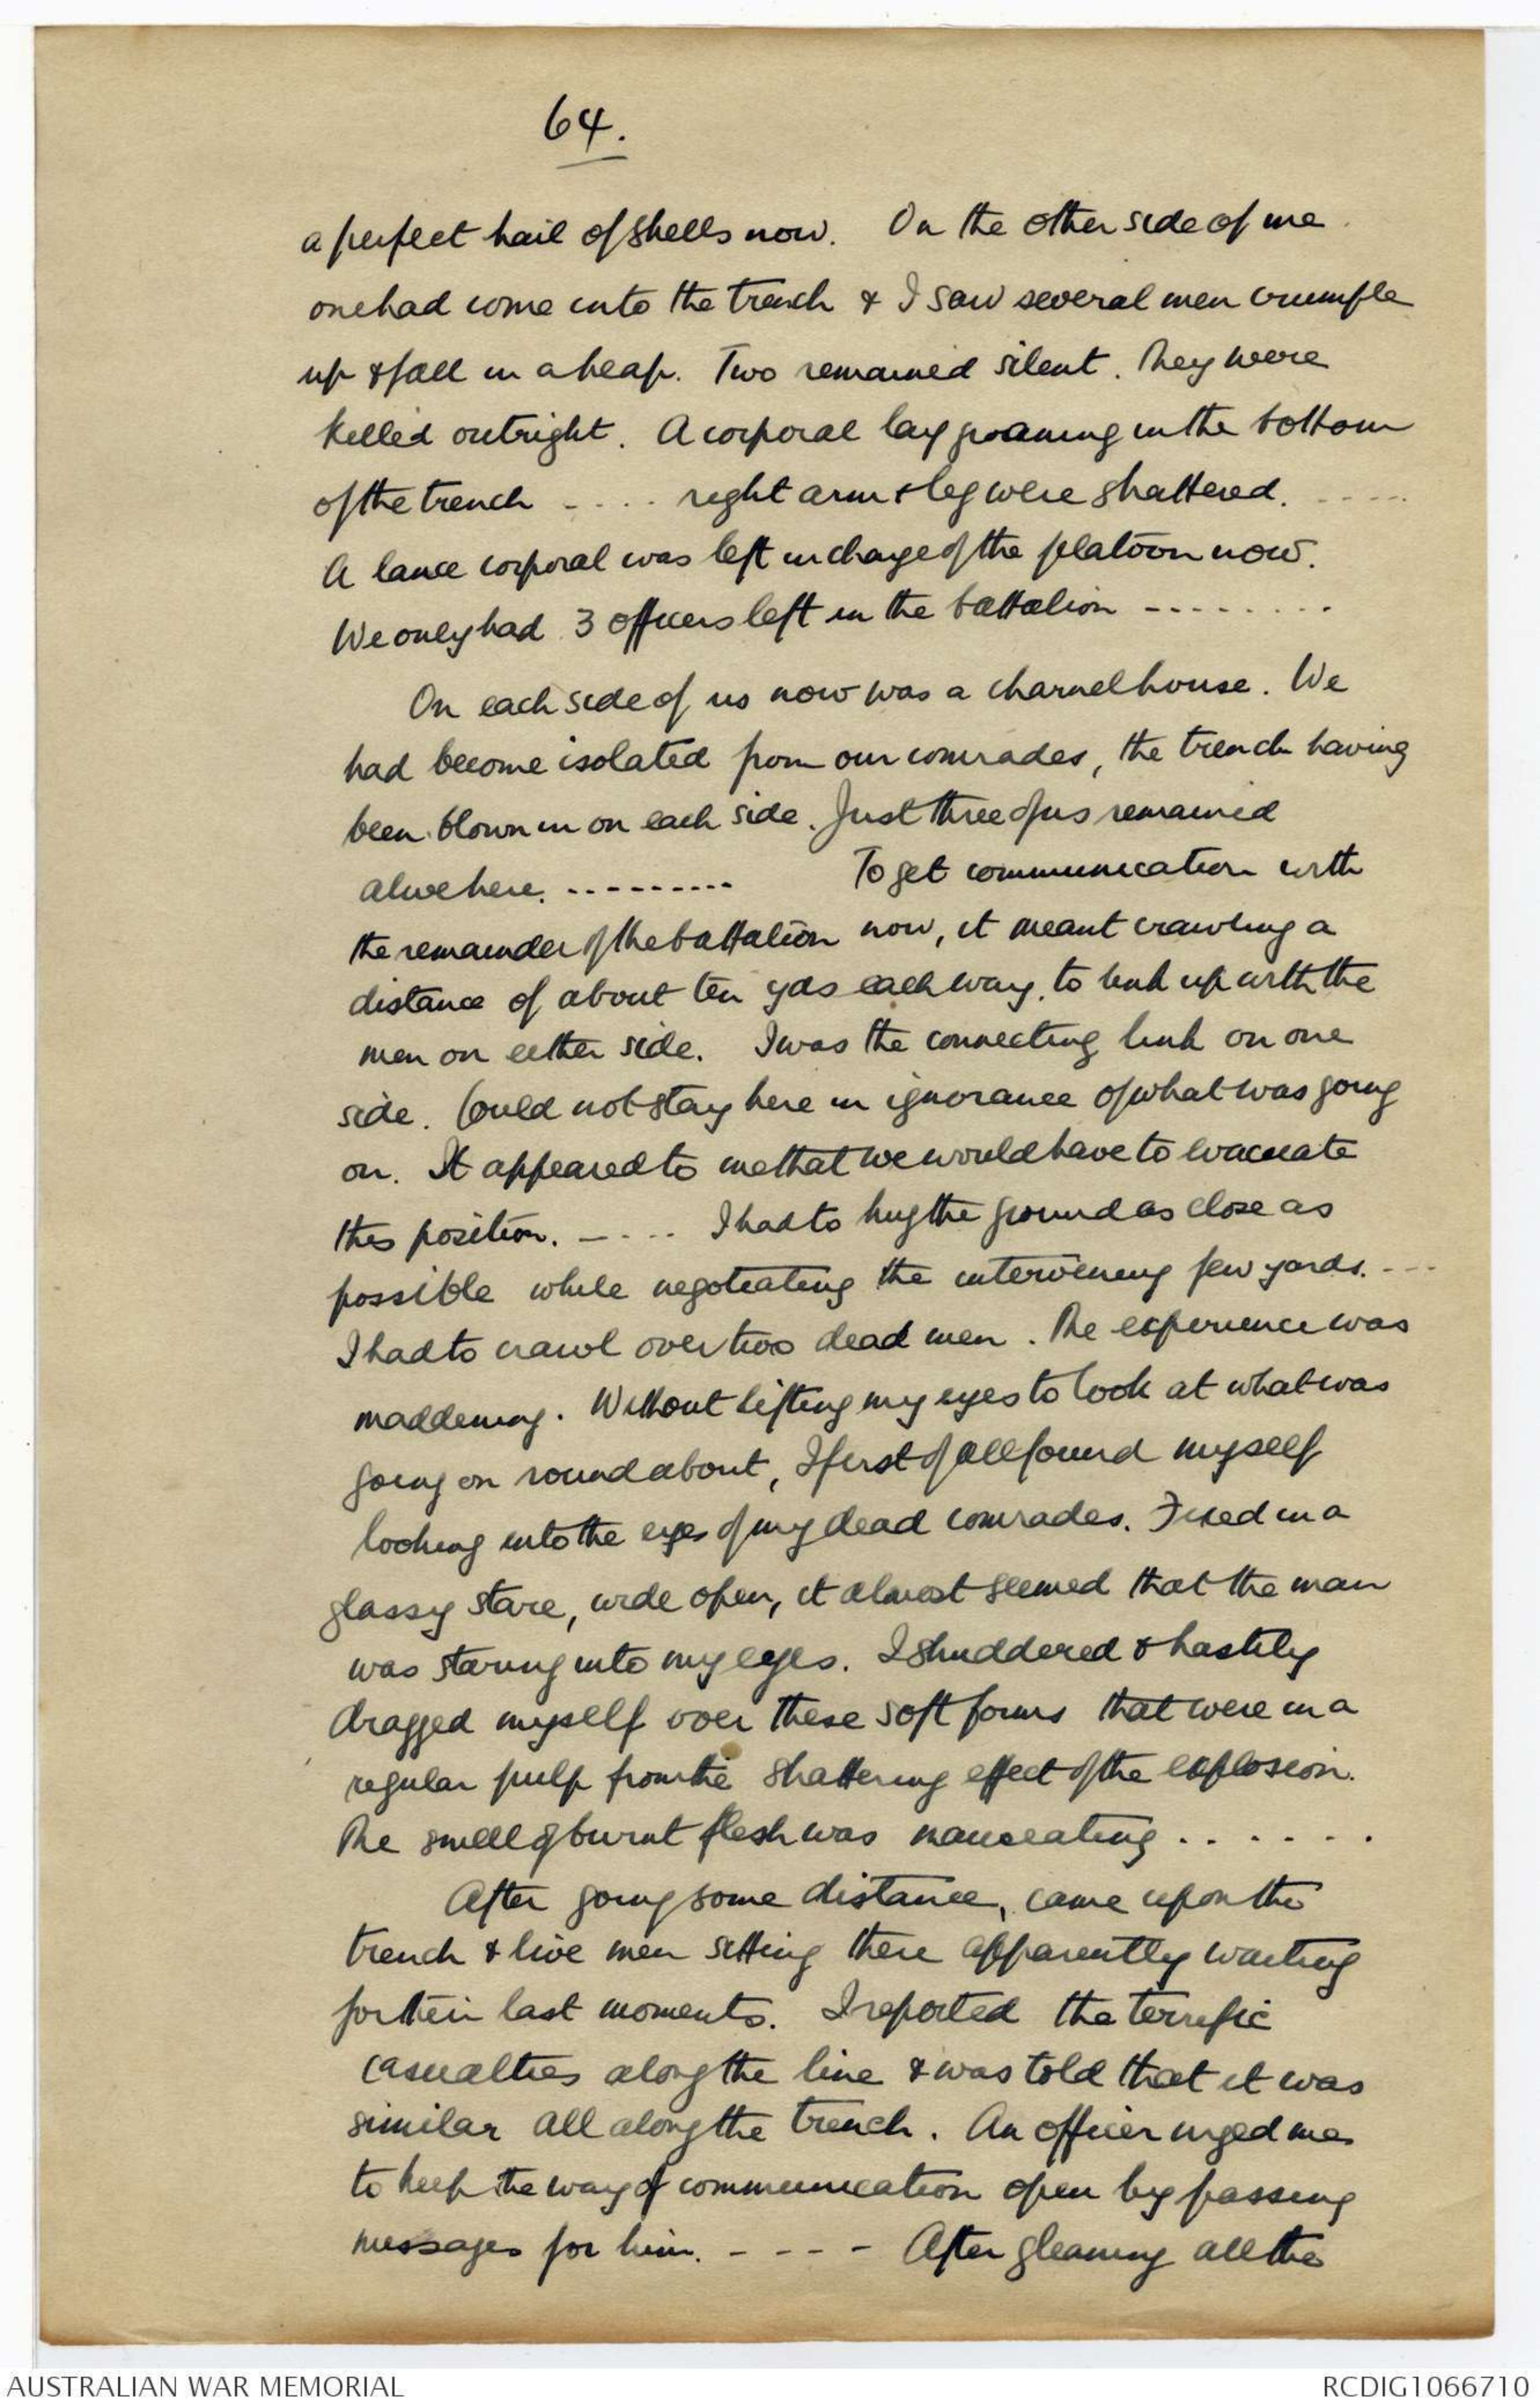 64.
a perfect hail of shells now. On the other side of me
one had come into the trench & I saw several men crumple
up & fall in a heap. Two remained silent. They were
killed outright. A corporal lay groaning in the bottom
of the trench - . . . right arm & leg were shattered. - - - - -
A lance corporal was left in charge of the platoon now.
We only had 3 officers left in the battalion - - - - - - - -
On each side of us now was a charnelhouse. We
had become isolated from our comrades, the trench having
been blown in on each side. Just three of us remained
alive here. - - - - - - - - - To get communication with
the remainder of the battalion now, it meant crawling a
distance of about ten yds each way, to link up with the
men on either side. I was the connecting link on one
side. Could not stay here in ignorance of what was going
on. It appeared to me that we would have to evacuate
this position. - - - - - I had to hug the ground as close as
possible while negotiating the intervening few yards. - - -
I had to crawl over two dead men. The experience was
maddening. Without lifting my eyes to look at what was
going on round about, I first of all found myself
looking into the eyes of my dead comrades. Fixed in a
glassy stare, wide open, it almost seemed that the man
was staring into my eyes. I shuddered & hastily
dragged myself over these soft forms that were in a
regular pulp from the shattering effect of the explosion.
The smell of burnt flesh was nauseating . . . . . . .
After going some distance, came upon the
trench & live men sitting there apparently waiting
for their last moments. I reported the terrific
casualties along the line & was told that it was
similar all along the trench. An officer urged me
to keep the way of communication open by passing
messages for him. - - - - After gleaning all the
AUSTRALIAN WAR MEMORIAL
RCDIG1066710